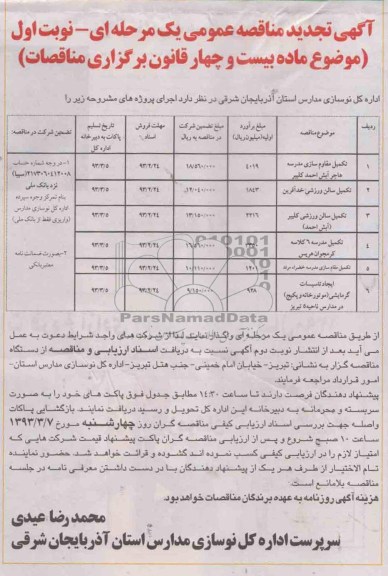 آگهی تجدید مناقصه عمومی یک مرحله ای - نوبت اول
(موضوع ماده بیست و چهار قانون برگزاری مناقصات)
اداره کل نوسازی مدارس استان آذربایجان شرقی در نظر دارد اجرای پروژه های مشروحه زیر را
ردیف موضوع مناقصه مبلغ برآورد اولیه(میلیون ریال) مبلغ تضمین شرکت در مناقصه به ریال مهلت فروش اسناد تاریخ تسلیم پاکات به دبیرخانه اداره کل تضمین شرکت در مناقصه:
۱ تکمیل مقاوم سازی مدرسه هاجر آبش احمد کلیبر ۴۰۱۹ ۹۳/۲/۲۴ ۹۳/۳/۵
۲ تکمیل سالن ورزشی خدآفرین ۱۸۴۳ ۹۳/۲/۲۴ ۹۳/۳/۵
۳ تکمیل سالن ورزشی کلیبر (آبش احمد) ۹۳/۲/۲۴ ۹۳/۳/۵
۴ تکمیل مدرسه ۶ کلاسه کرمجوان هریس ۹۳/۲/۲۴ ۹۳/۳/۵
۵ تکمیل مقاوم سازی مدرسه ۹۳/۲/۲۴ ۹۳/۳/۵
ایجاد تاسیسات گرمایشی(موتورخانه و پکیج) در مدارس ناحیه۵ تبریز ۹۲۸ ۹۳/۲/۲۴ ۹۳/۳/۵
۱- در وجه شماره حساب
نزد بانک ملی
بنام تمرکز وجوه سپرده
اداره کل نوسازی مدارس
(واریزی فقط از بانک ملی)
۲- بصورت ضمانت نامه
معتبر بانکی
ParsNamadData
از طریق مناقصه عمومی یک مرحله ای واگذار نماید. لذا از شرکت های واجد شرایط دعوت به عمل
می آید بعد از انتشار نوبت دوم آگهی نسبت به دریافت اسناد ارزیابی و مناقصه از دستگاه
مناقصه گزار به نشانی: تبریز- خیابان امام خمینی- جنب هتل تبریز- اداره کل نوسازی مدارس استان-
امور قرارداد مراجعه فرمایند.
پیشنهاد دهندگان فرصت دارند تا ساعت ۱۴:۳۰ مطابق جدول فوق پاکت های خود را به صورت
سربسته و محرمانه به دبیرخانه این اداره کل تحویل و رسید دریافت نمایند. بازگشایی پاکات
واصله جهت بررسی اسناد ارزیابی کیفی مناقصه گران روز چهارشنبه مورخ ۱۳۹۳/۳/۷
ساعت ۱۰ صبح شروع و پس از ارزیابی مناقصه گران پاکت پیشنهاد قیمت شرکت هایی که
امتیاز لازم را در ارزیابی کیفی کسب نموده اند گشوده و قرائت خواهد شد. حضور نماینده
تام الاختیار از طرف هر یک از پیشنهاد دهندگان با در دست داشتن معرفی نامه در جلسه
مناقصه بلامانع است.
هزینه آگهی روزنامه به عهده برندگان مناقصات خواهد بود.
محمدرضا عیدی
سرپرست اداره کل نوسازی مدارس استان آذربایجان شرقی